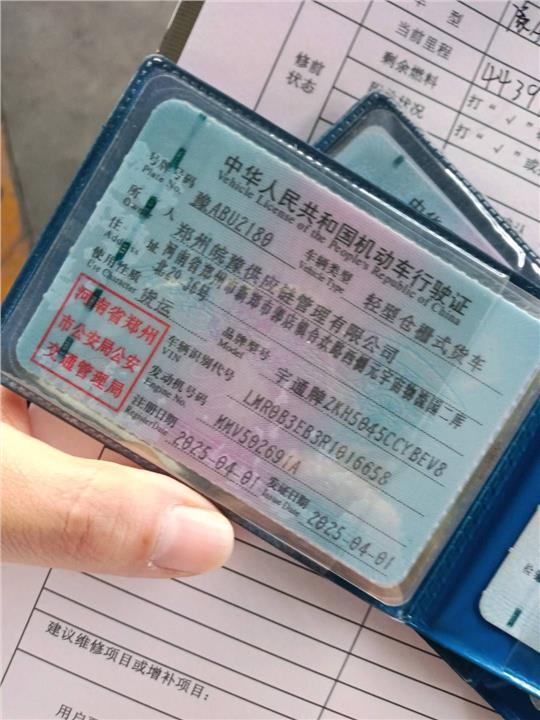 车 型
当前里程
剩余燃料
修前
状态
4439
打“√”
打“√”或
中华人民共和国机动车行驶证
Vehicle License of the People's Republic of China
号牌号码
Plate No.
豫ABU2180
车辆类型
Vehicle Type
轻型仓栅式货车
所有人
Owner
郑州皖豫供应链管理有限公司
住址
Address
使用性质
Use Character
货运
品牌型号
Model
宇通牌ZKH5045CCYBEV8
河南省郑州
市公安局公安
交通管理局
车辆识别代号
VIN
LMR0B3EB3R1016658
发动机号码
Engine No.
MMV502691A
注册日期
Register Date
2025-04-01
发证日期
Issue Date
2025-04-01
建议维修项目或增补项目: